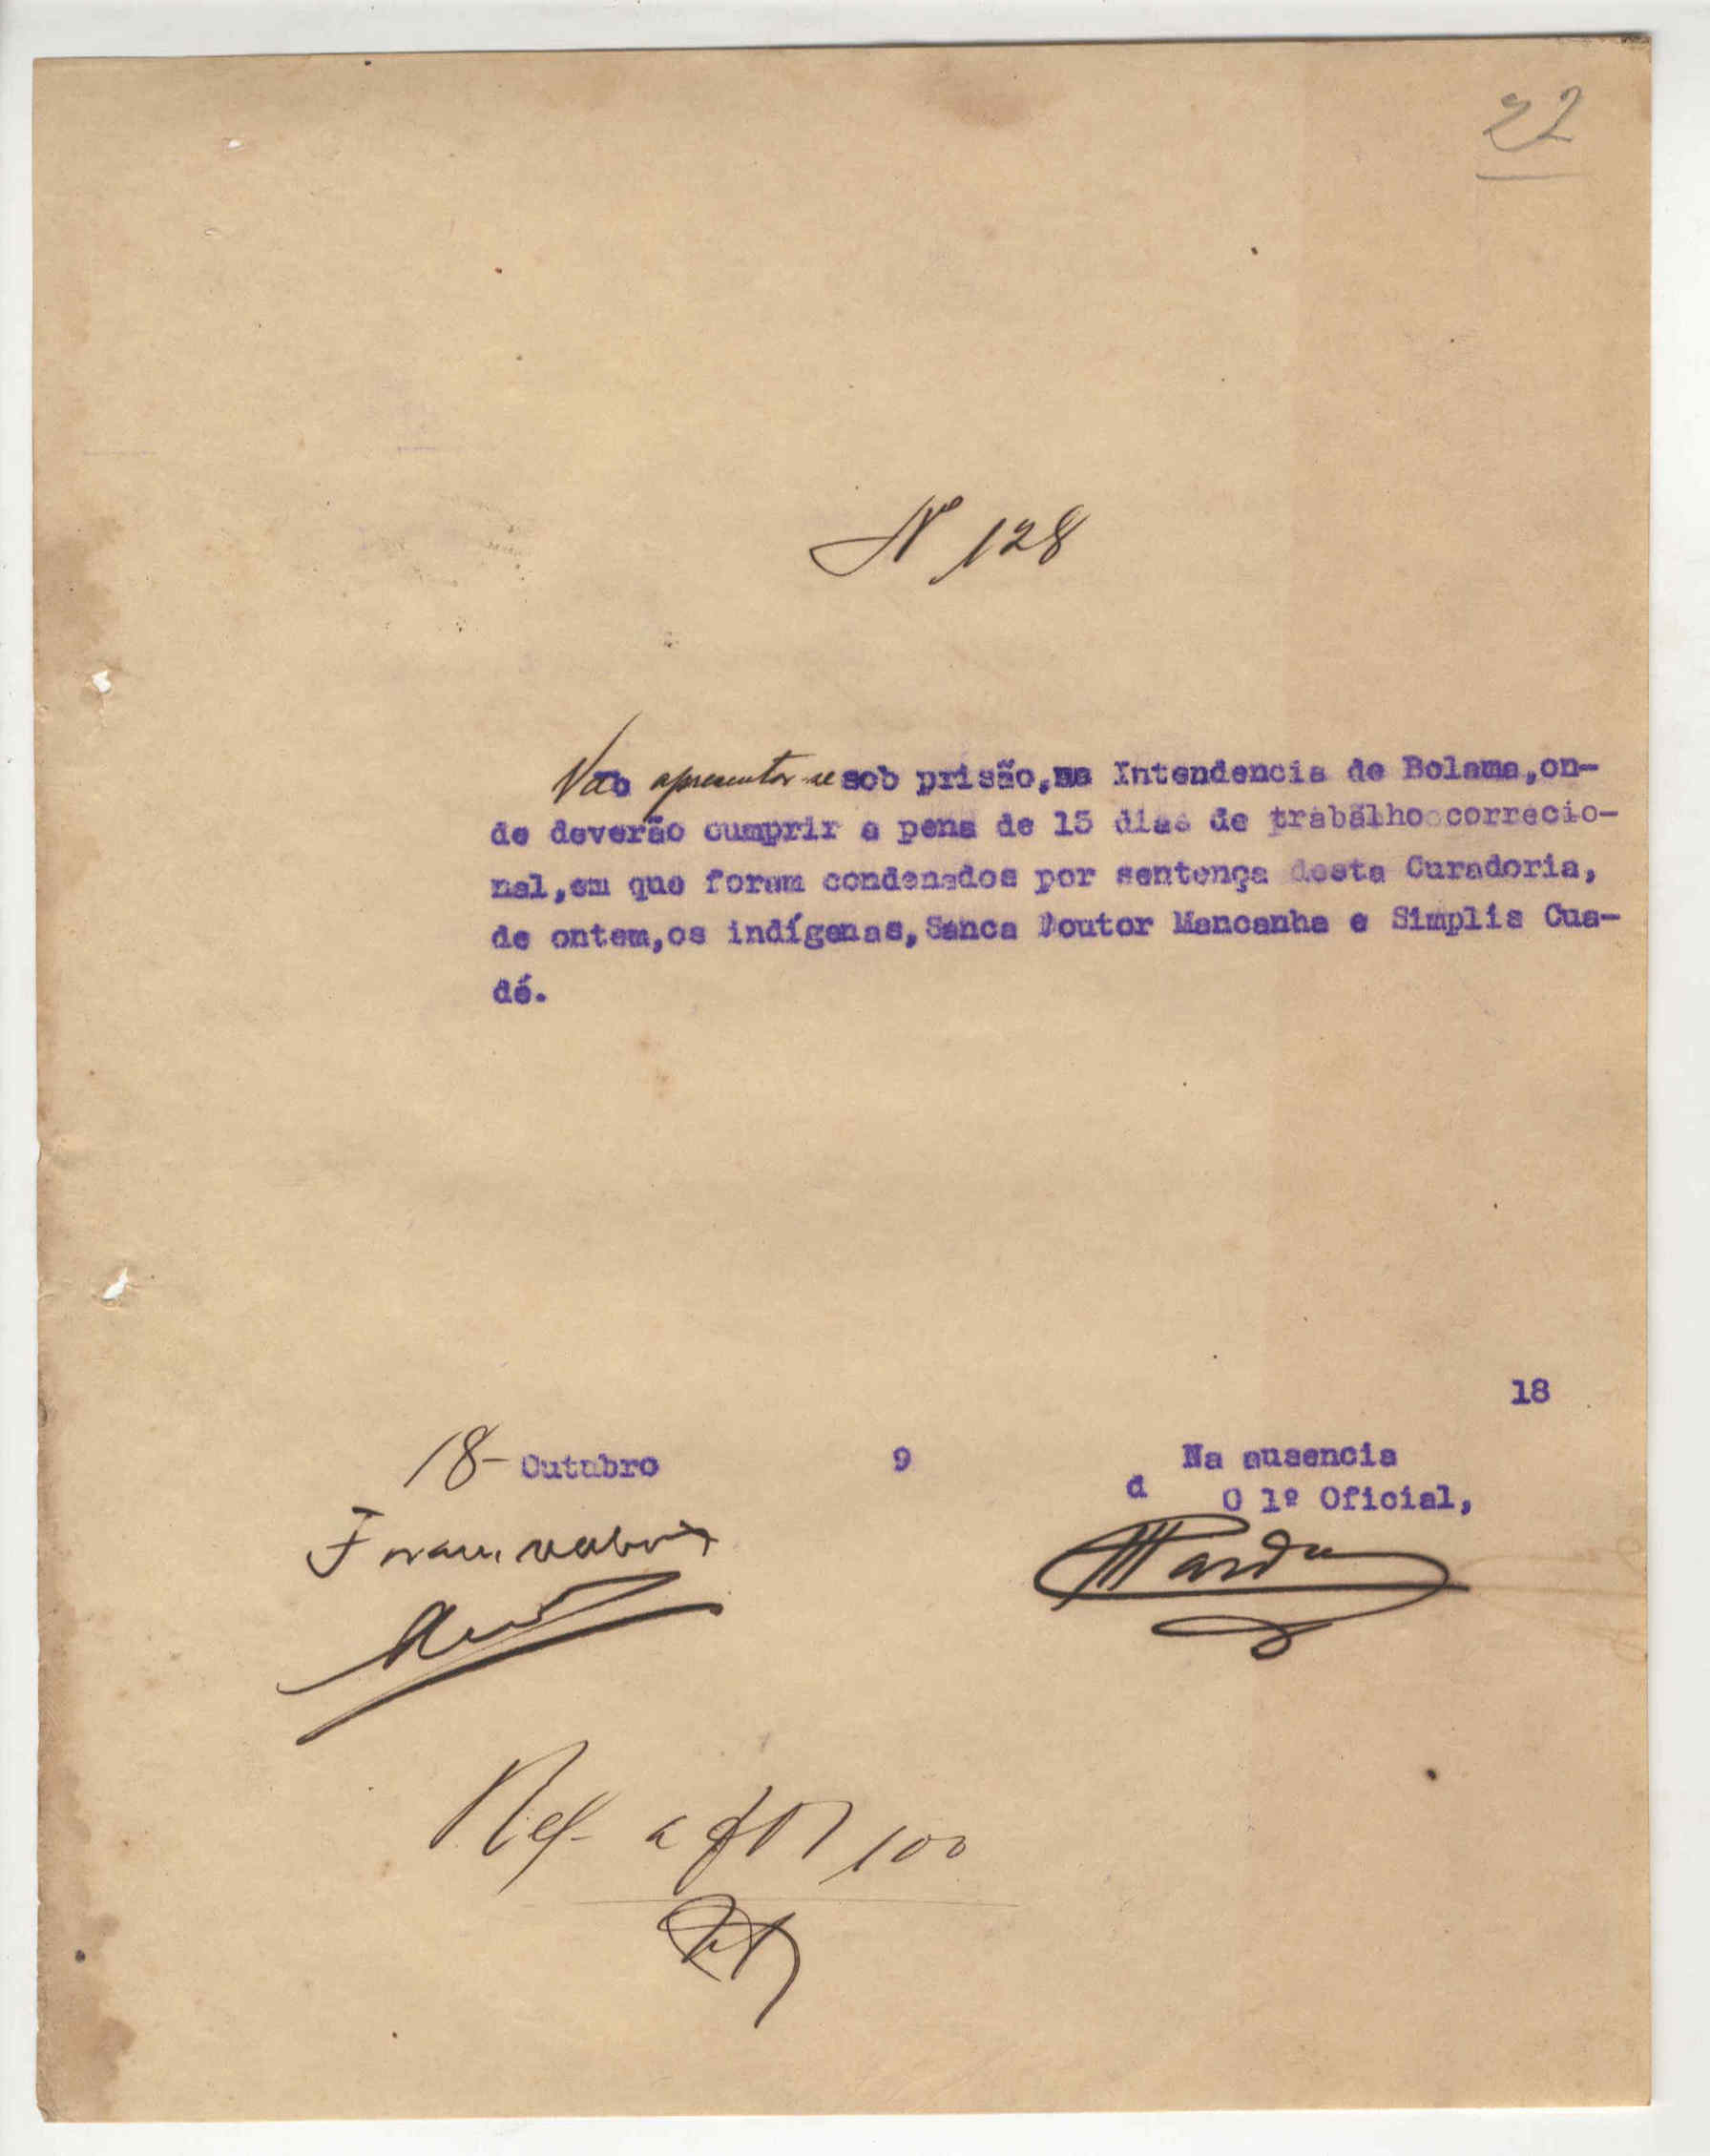 22
Nº 128
Vão apresentar-se sob prisão,na Intendencia de Bolama,on-
de deverão cumprir a pena de 15 dias de trabalho correcio-
nal,em que foram condenados por sentença desta Curadoria,
de ontem,os indígenas,Sanca Doutor Mancanha e Simplis Cua-
dé.
18
18- Outubro 9 Na ausencia
d O 1º Oficial,
Ref- a 100